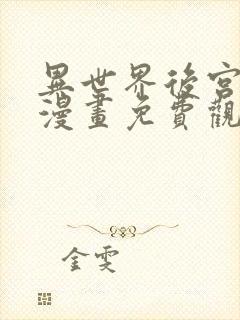 異世界後宮
漫畫免費觀
金雯